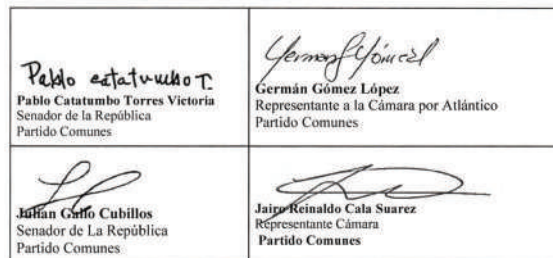 Pablo catatumbo T.
Pablo Catatumbo Torres Victoria
Senador de la República
Partido Comunes
Germán Gómez López
Representante a la Cámara por Atlántico
Partido Comunes
Julián Gallo Cubillos
Senador de La República
Partido Comunes
Jairo Reinaldo Cala Suarez
Representante Cámara
Partido Comunes